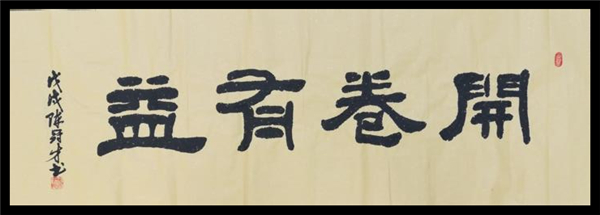 開卷有益
戊戌陳
書